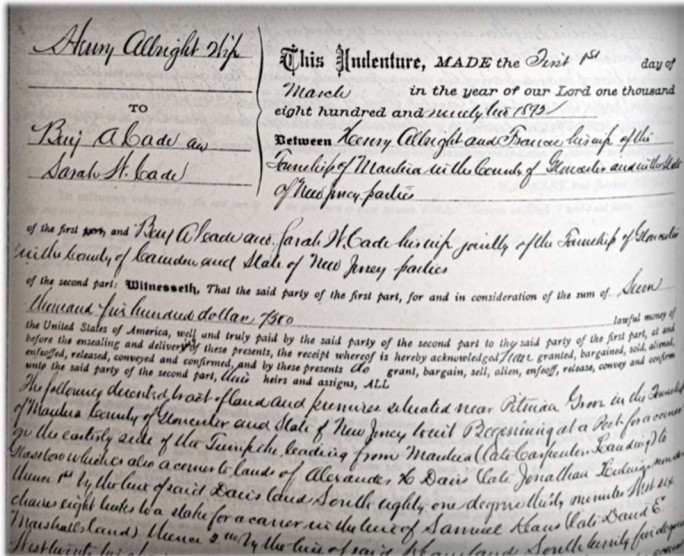 Henry Albright & wife
TO
Benj A Cade and
Sarah H. Cade
This Indenture, MADE the First 1st day of
March in the year of our Lord one thousand
eight hundred and ninety two 1892
Between Henry Albright and Frances his wife of the
Township of Mantua in the County of Gloucester and in the State
of New Jersey parties
of the first part, and Benj A Cade and Sarah H. Cade his wife jointly of the Township of Gloucester
in the County of Camden and State of New Jersey parties
of the second part: Witnesseth, That the said party of the first part, for and in consideration of the sum of Seven
thousand five hundred dollars 7500 lawful money of
the United States of America, well and truly paid by the said party of the second part to the said party of the first part, at and
before the ensealing and delivery of these presents, the receipt whereof is hereby acknowledged have granted, bargained, sold, aliened,
enfeoffed, released, conveyed and confirmed, and by these presents do grant, bargain, sell, alien, enfeoff, release, convey and confirm
unto the said party of the second part, their heirs and assigns, ALL
The following described tract of land and premises situated near Pitman Grove in the Township
of Mantua County of Gloucester and State of New Jersey to wit Beginning at a Post for a corner
in the easterly side of the Turnpike leading from Mantua (late Carpenter Landing) to
Glassboro which is also a corner to lands of Alexander Davis (late Jonathan
thence 1st by the line of said Davis land South eighty one degrees thirty minutes West six
chains eight links to a stake for a corner in the line of Samuel (late David E.
Marshall land) thence 2nd by the line of said land South twenty five degrees